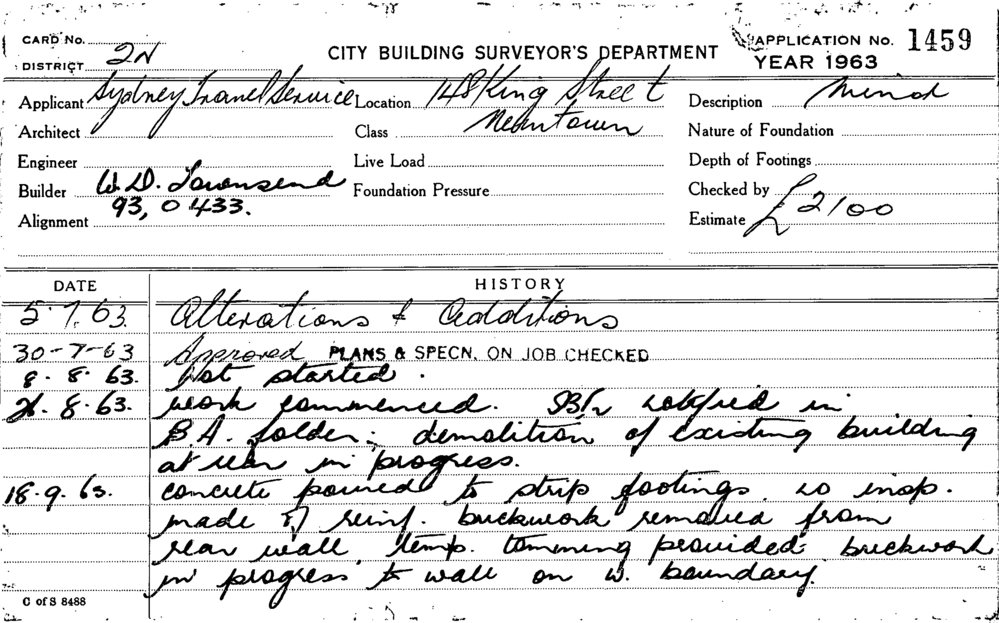 CARD No.
CITY BUILDING SURVEYOR'S DEPARTMENT
APPLICATION No. 1459
DISTRICT 2N
YEAR 1963
Applicant Sydney Travel Service Location 148 King Street Description Minor
Architect Class Newtown Nature of Foundation
Engineer Live Load Depth of Footings
Builder W.D. Townsend Foundation Pressure Checked by
Alignment 93, 0433. Estimate £2100
DATE HISTORY
5.7.63. Alterations & Additions
30-7-63 Approved PLANS & SPECN. ON JOB CHECKED
8.8.63. Not started.
8.63. work commenced. in
B.A. folder; demolition of existing building
at rear in progress.
18.9.63. concrete poured to strip footings. no insp.
made of reinf. brickwork removed from
rear wall temp. tomming provided brickwork
in progress to wall on W. boundary.
C of S 8488